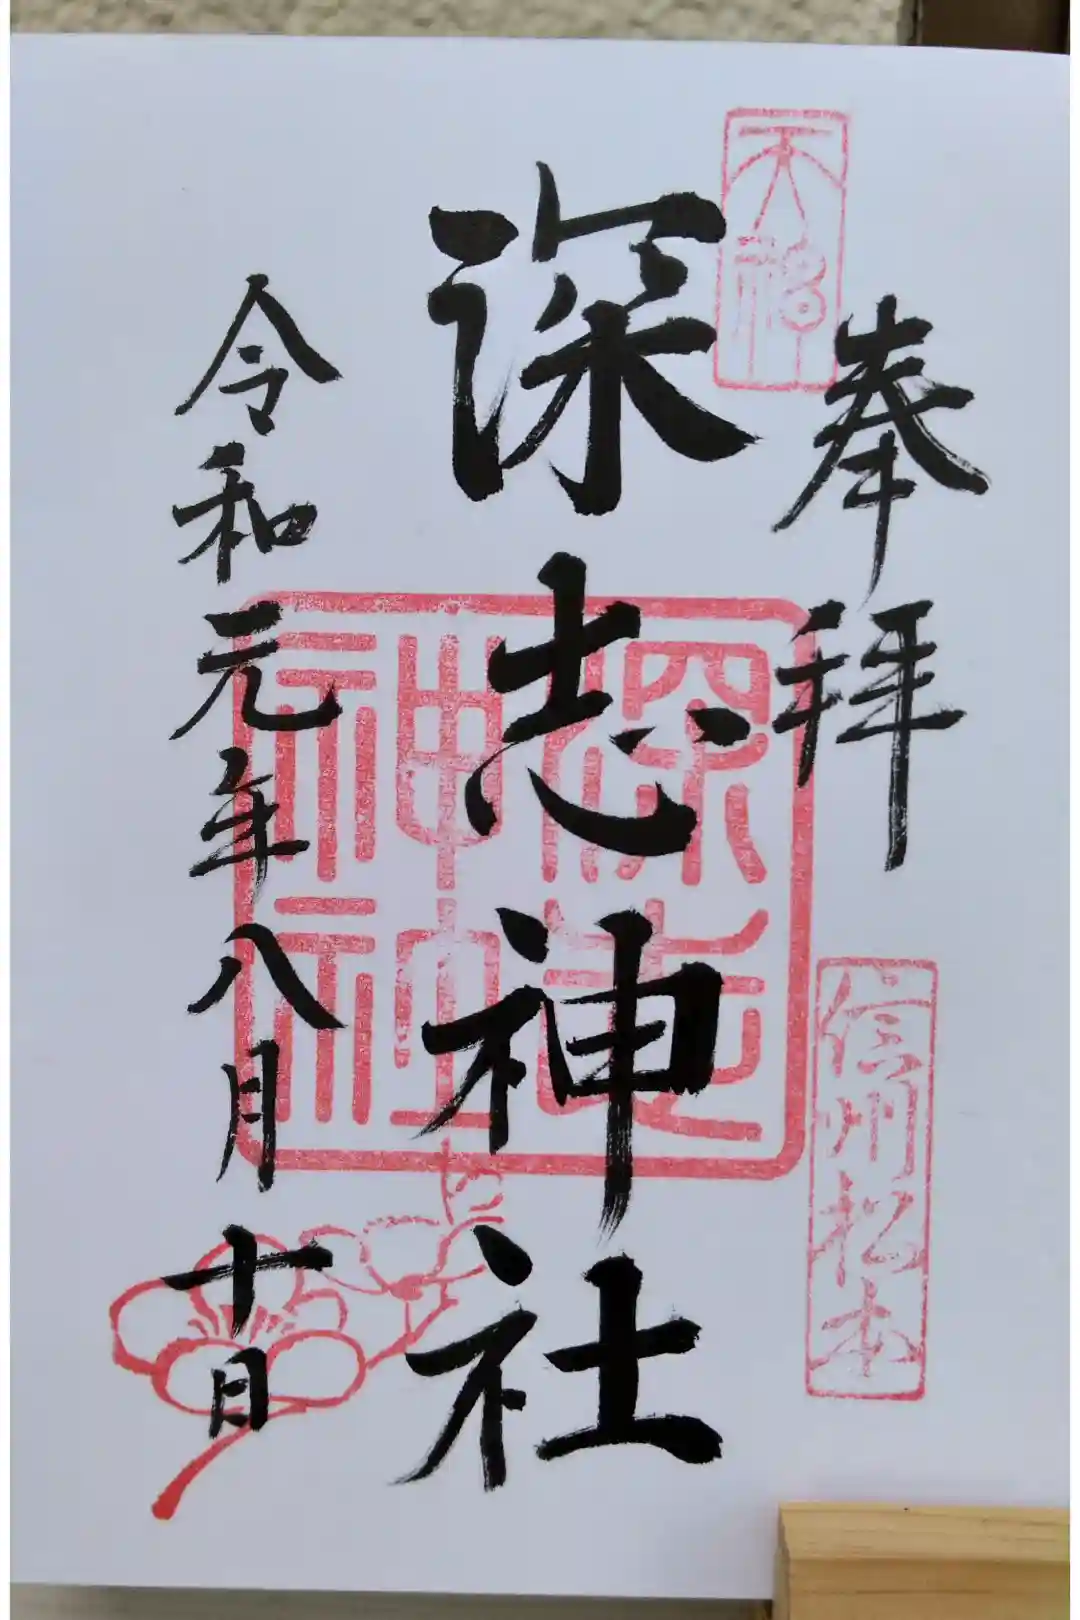 奉拝
信州松本
深志神社
深志神社
令和元年八月十日